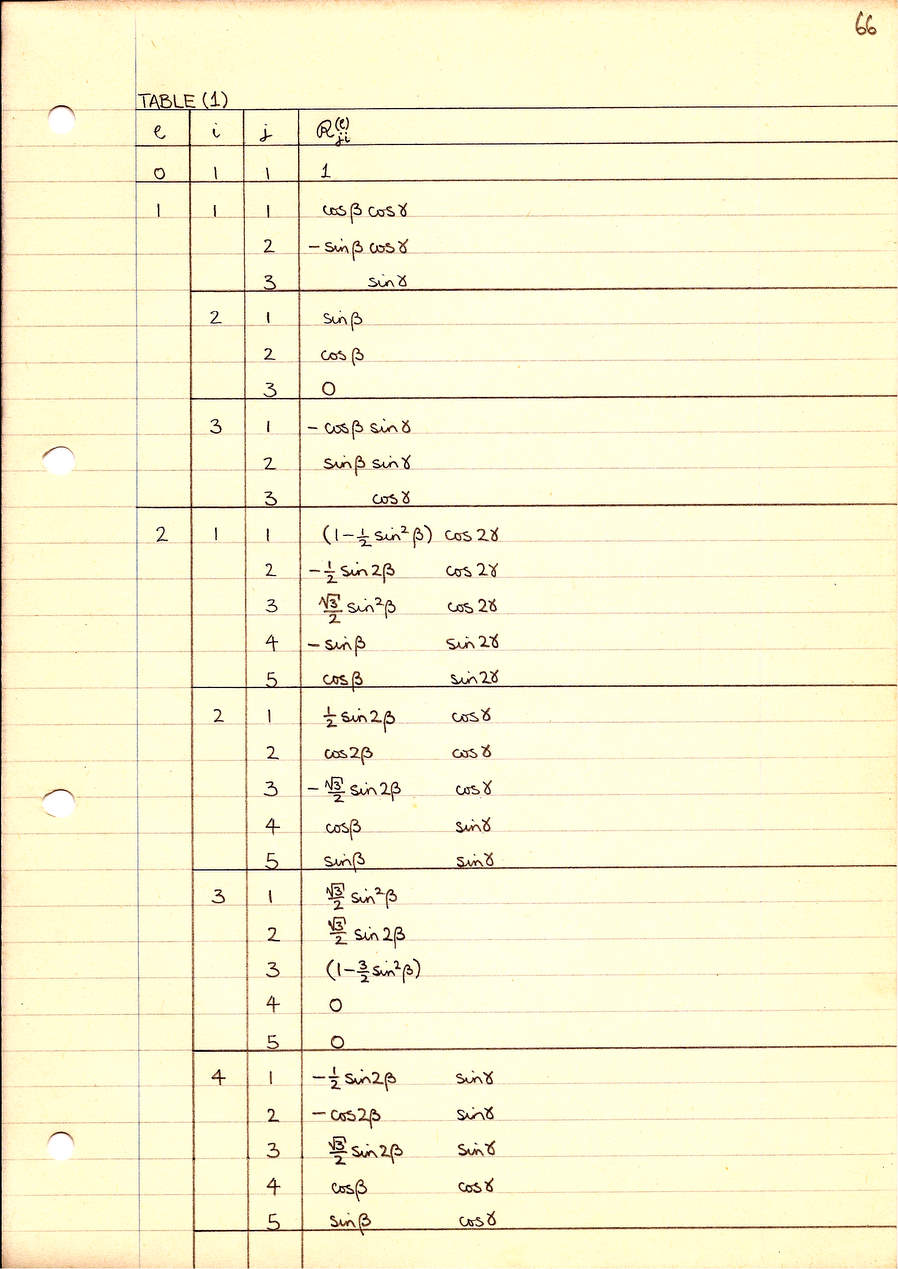 66
TABLE (1)
ℓ i j R⁽ˡ⁾ⱼᵢ
0 1 1 1
1 1 1 cosβ cosγ
2 - sinβ cosγ
3 sinγ
2 1 sinβ
2 cosβ
3 0
3 1 - cosβ sinγ
2 sinβ sinγ
3 cosγ
2 1 1 (1-½ sin²β) cos2γ
2 -½ sin2β cos2γ
3 √3/2 sin²β cos2γ
4 - sinβ sin2γ
5 cosβ sin2γ
2 1 ½ sin2β cosγ
2 cos2β cosγ
3 - √3/2 sin2β cosγ
4 cosβ sinγ
5 sinβ sinγ
3 1 √3/2 sin²β
2 √3/2 sin2β
3 (1-3/2 sin²β)
4 0
5 0
4 1 -½ sin2β sinγ
2 - cos2β sinγ
3 √3/2 sin2β sinγ
4 cosβ cosγ
5 sinβ cosγ